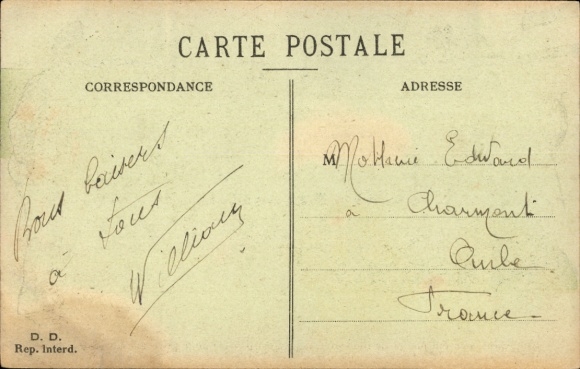 CARTE POSTALE
CORRESPONDANCE
ADRESSE
Bons baisers
à Tous
William
M Edward
à Charmont
Aube
France
D. D.
Rep. Interd.